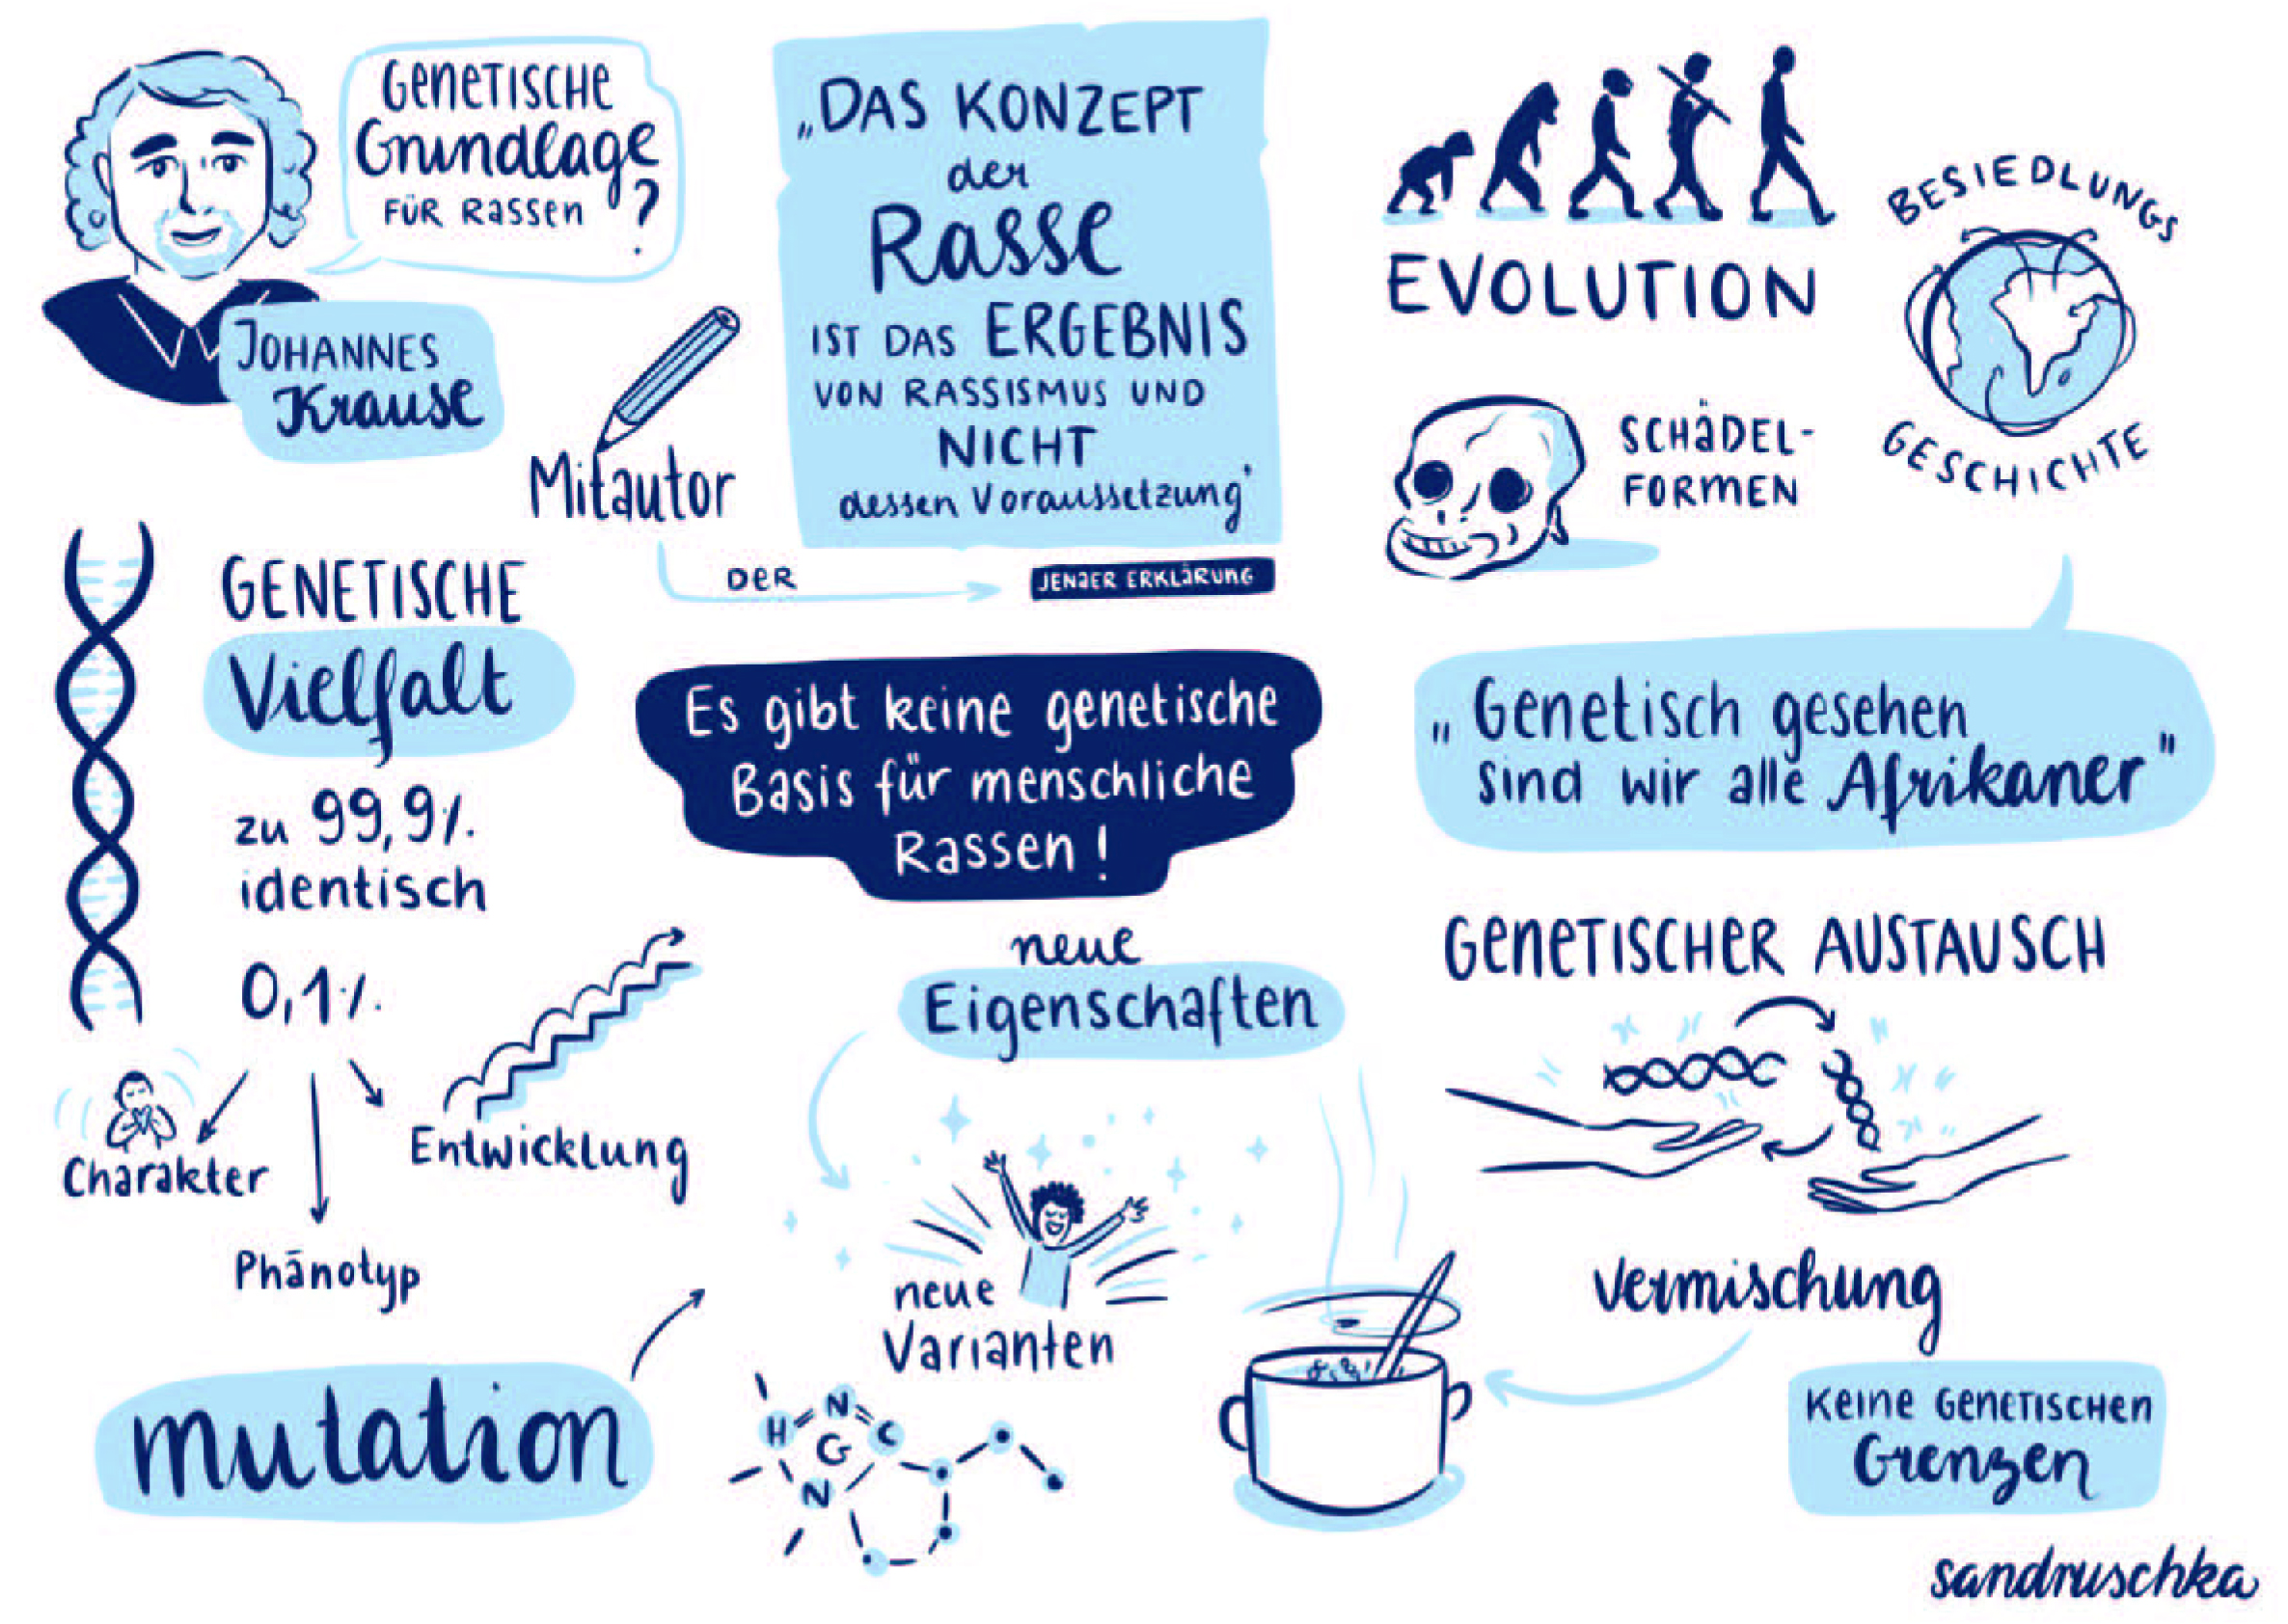 GENETISCHE
Grundlage
FÜR RASSEN ?
JOHANNES
Krause
Mitautor
DER
„DAS KONZEPT
der
Rasse
IST DAS ERGEBNIS
VON RASSISMUS UND
NICHT
dessen Voraussetzung'
JENAER ERKLÄRUNG
EVOLUTION
BESIEDLUNGS
GESCHICHTE
SCHÄDEL-
FORMEN
GENETISCHE
Vielfalt
zu 99,9%
identisch
0,1%
Charakter
Phänotyp
Entwicklung
Es gibt keine genetische
Basis für menschliche
Rassen !
„Genetisch gesehen
sind wir alle Afrikaner"
mutation
neue
Eigenschaften
neue
Varianten
H N C
G
N
GENETISCHER AUSTAUSCH
Vermischung
KEINE GENETISCHEN
Grenzen
sandruschka